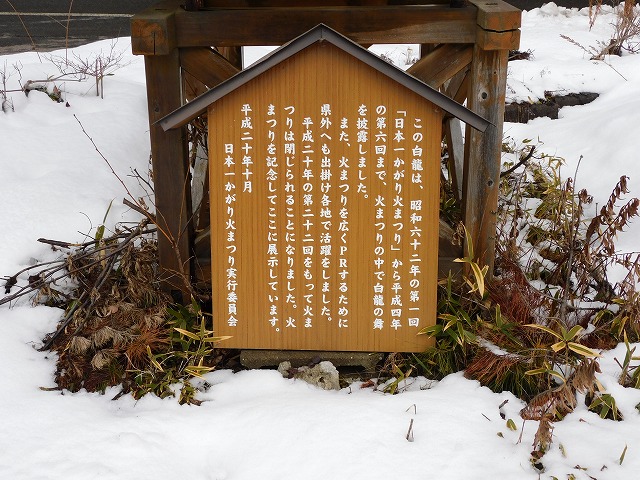 この白龍は、昭和六十二年の第一回
「日本一かがり火まつり」から平成四年
の第六回まで、火まつりの中で白龍の舞
を披露しました。
また、火まつりを広くＰＲするために
県外へも出掛け各地で活躍をしました。
平成二十年の第二十二回をもって火ま
つりは閉じられることになりました。火
まつりを記念してここに展示しています。
平成二十年十月
日本一かがり火まつり実行委員会